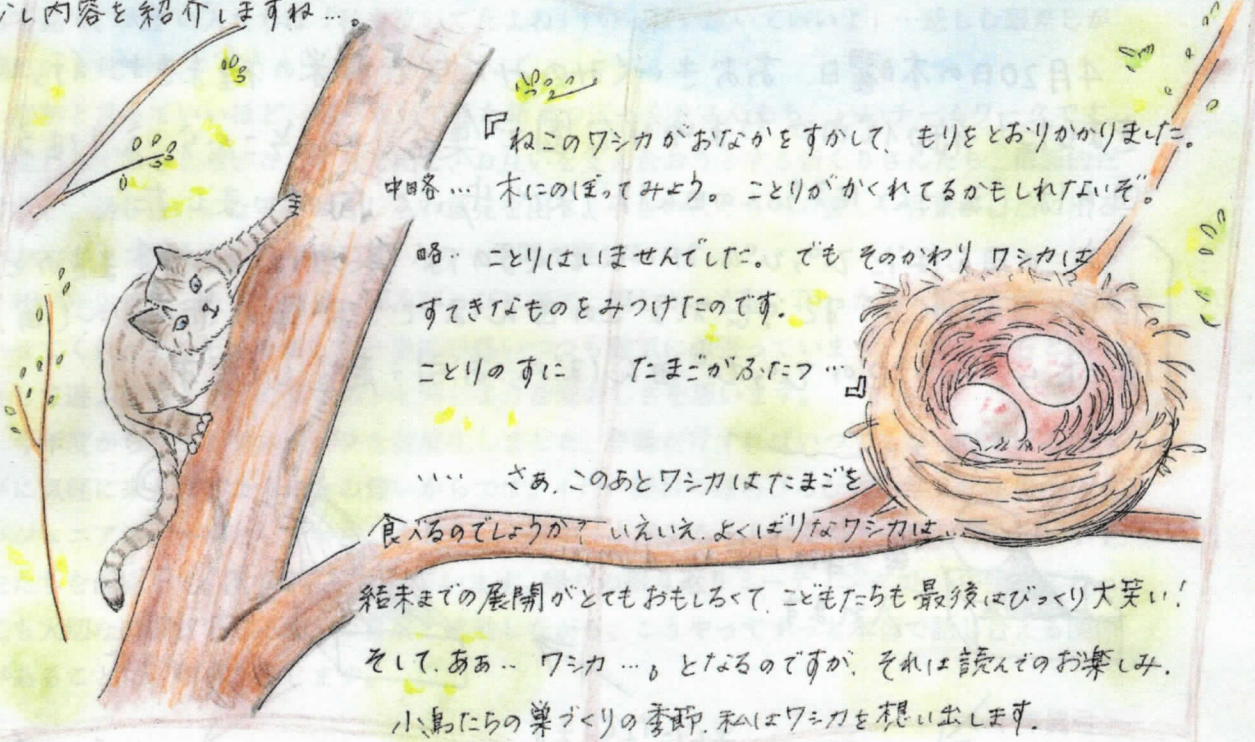 し内容を紹介しますね…。
『ねこのワシカがおなかをすかして、もりをとおりかかりました。
中略… 木にのぼってみよう。ことりがかくれてるかもしれないぞ。
略‥ ことりはいませんでした。でもそのかわりワシカは
すてきなものをみつけたのです。
ことりのすに たまごがふたつ…』
‥‥ さぁ、このあとワシカはたまごを
食べるのでしょうか？いえいえ、よくばりなワシカは‥
結末までの展開がとてもおもしろくて、こどもたちも最後はびっくり大笑い！
そして、あぁ‥ ワシカ…。となるのですが、それは読んでのお楽しみ。
小鳥たちの巣づくりの季節、私はワシカを想い出します。